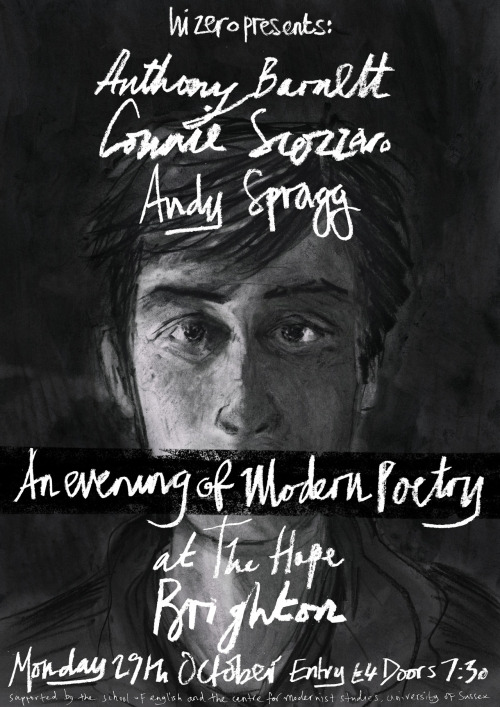 hi zero presents:
Anthony Barnett
Connie Scozzaro
Andy Spragg
An evening of Modern Poetry
at The Hope
Brighton
Monday 29th October Entry £4 Doors 7:30
supported by the school of english and the centre for modernist studies, university of Sussex